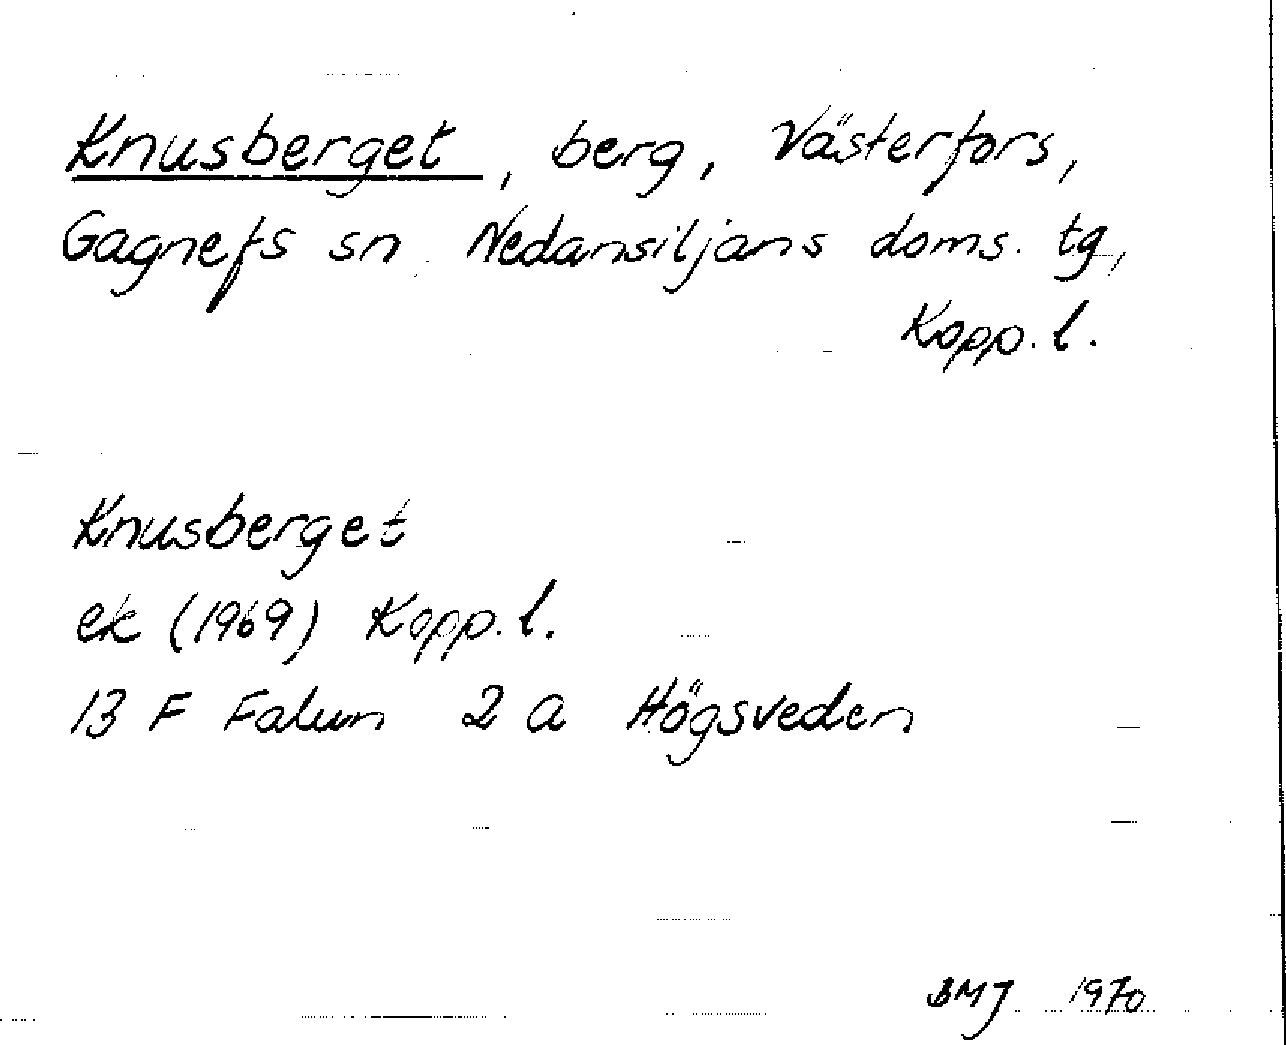 Knusberget, berg, Västerfors,
Gagnefs sn Nedansiljans doms. tg,
Kopp. l.
Knusberget
ek (1969) Kopp. l.
13 F Falun 2 a Högsveden
BMJ 1970